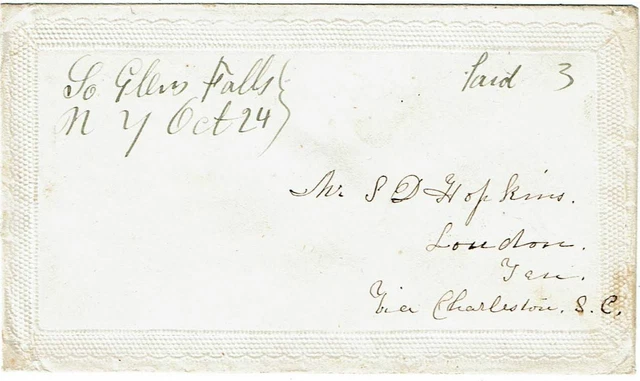 So Glens Falls
N Y Oct 24
Paid 3
Mr S D Hopkins.
Loudon.
Ten.
Via Charleston, S. C.